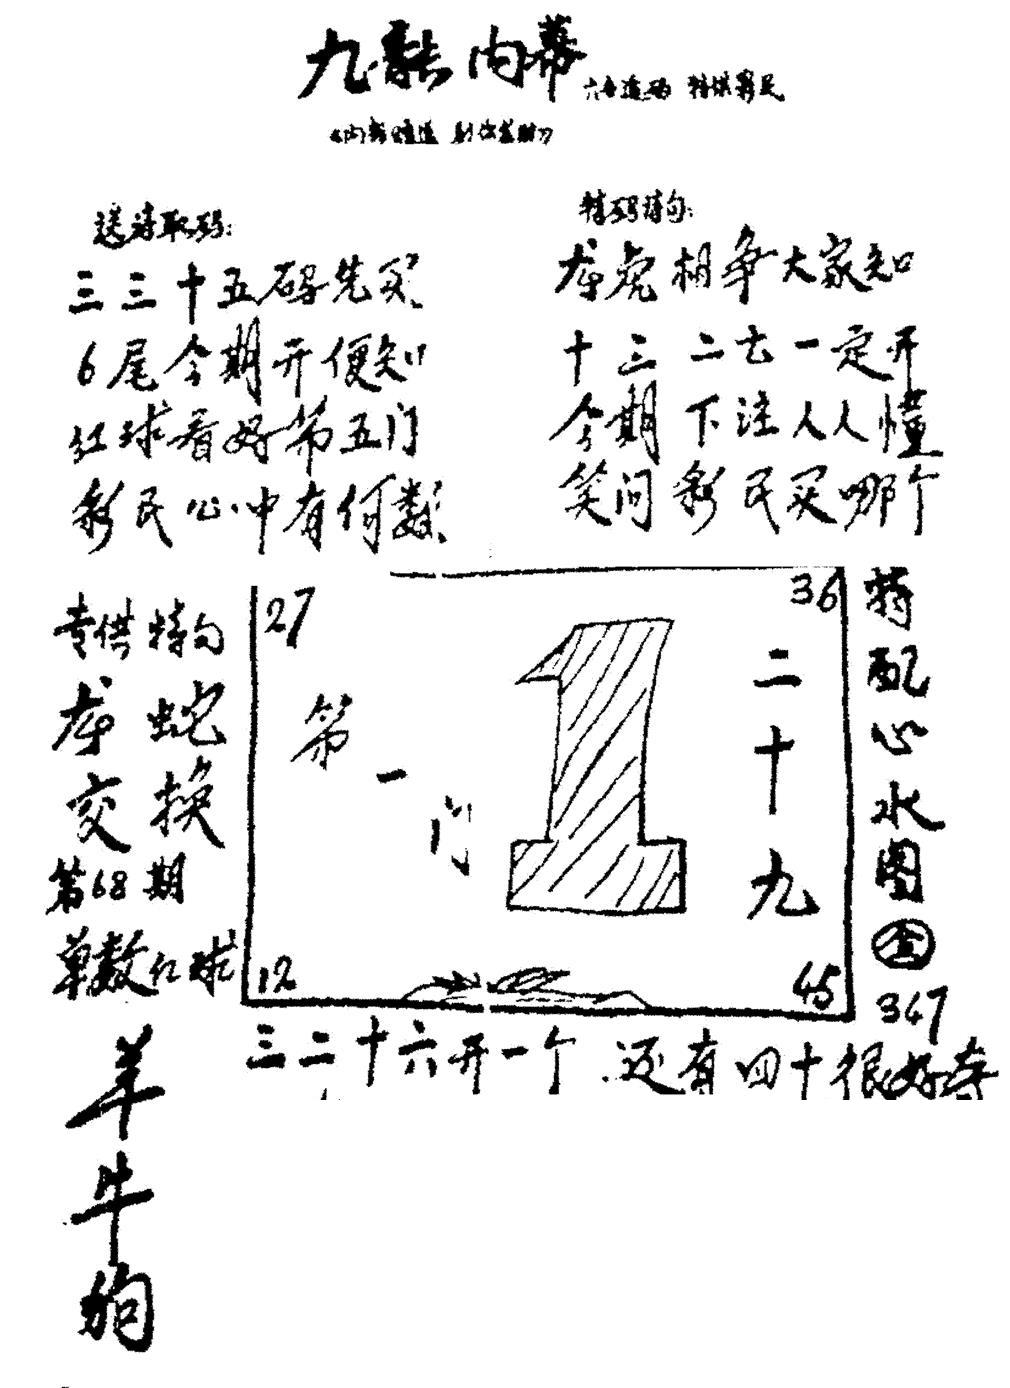 九龍内幕
送诗取码:
三三十五码先买
6尾今期开便知
红球看好第五门
彩民心中有何数
特码诗句:
龙虎相争大家知
十三二七一定开
今期下注人人懂
笑问彩民买哪个
专供特句
龙蛇
交换
第68期
单数红球
羊
牛
狗
27
36
第一门
1
二十九
12
45
特配心水图
347
三二十六开一个 还有四十很好夺